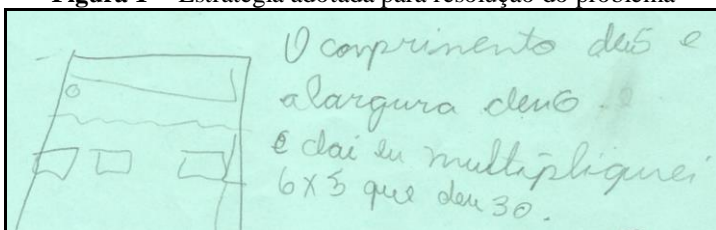 Figura 1 – Estratégia adotada para resolução do problema
O comprimento deu 5 e
a largura deu 6. e
e dai eu multipliquei
6x5 que deu 30.